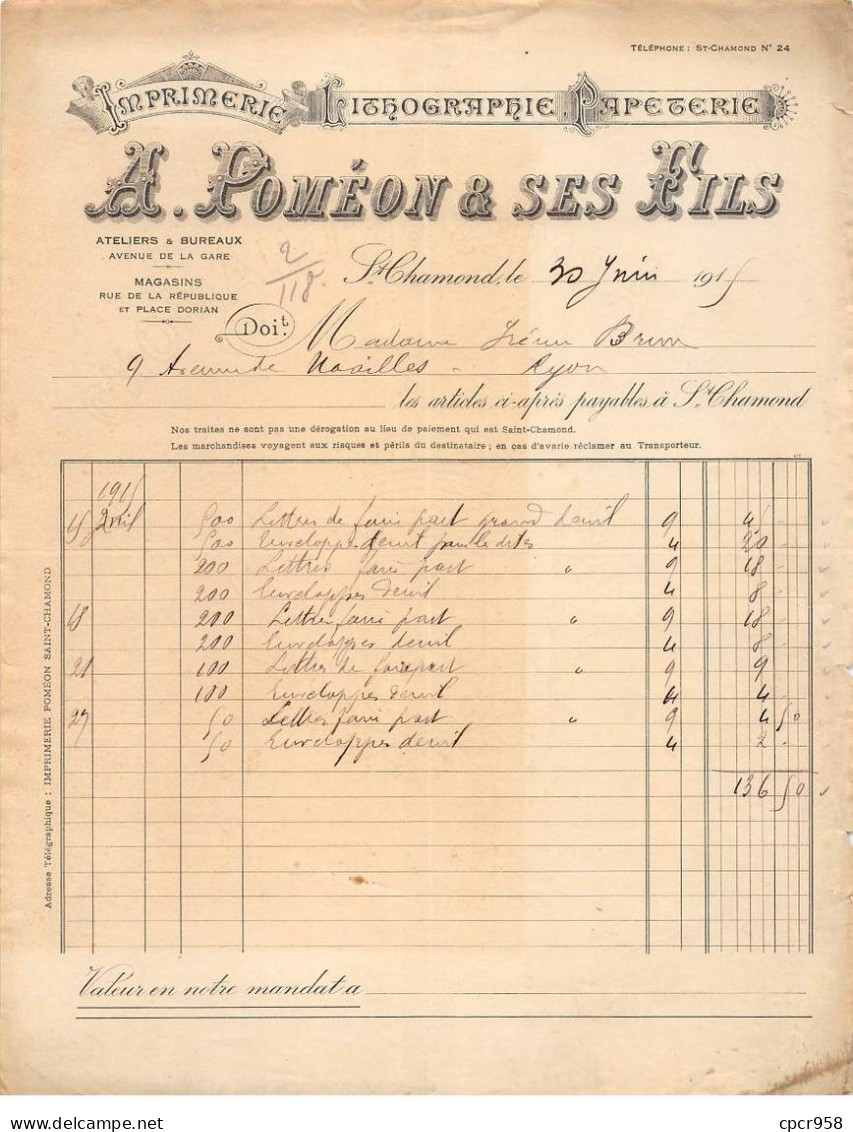 TÉLÉPHONE : ST-CHAMOND N° 24
IMPRIMERIE LITHOGRAPHIE, PAPETERIE
A. POMÉON & SES FILS
ATELIERS & BUREAUX
AVENUE DE LA GARE
MAGASINS
RUE DE LA RÉPUBLIQUE
ET PLACE DORIAN
2/118.
St Chamond, le 30 Juin 1915
Doit. Madame Brun
9 Avenue de Noailles - Lyon
les articles ci-après payables à St Chamond
Nos traites ne sont pas une dérogation au lieu de paiement qui est Saint-Chamond.
Les marchandises voyagent aux risques et périls du destinataire ; en cas d'avarie réclamer au Transporteur.
1915
15 Avril 500 Lettres de faire part grand deuil 9 45 -
500 Enveloppes deuil pour les dites 4 20 -
200 Lettres faire part " 9 18 -
200 Enveloppes deuil 4 8 -
18 200 Lettres faire part " 9 18 -
200 Enveloppes deuil 4 8 -
21 100 Lettres de faire part " 9 9 -
100 Enveloppes deuil 4 4 -
27 50 Lettres faire part " 9 4 50
50 Enveloppes deuil 4 2 -
136 50
Adresse Télégraphique : IMPRIMERIE POMÉON SAINT-CHAMOND
Valeur en notre mandat a
cpcr958